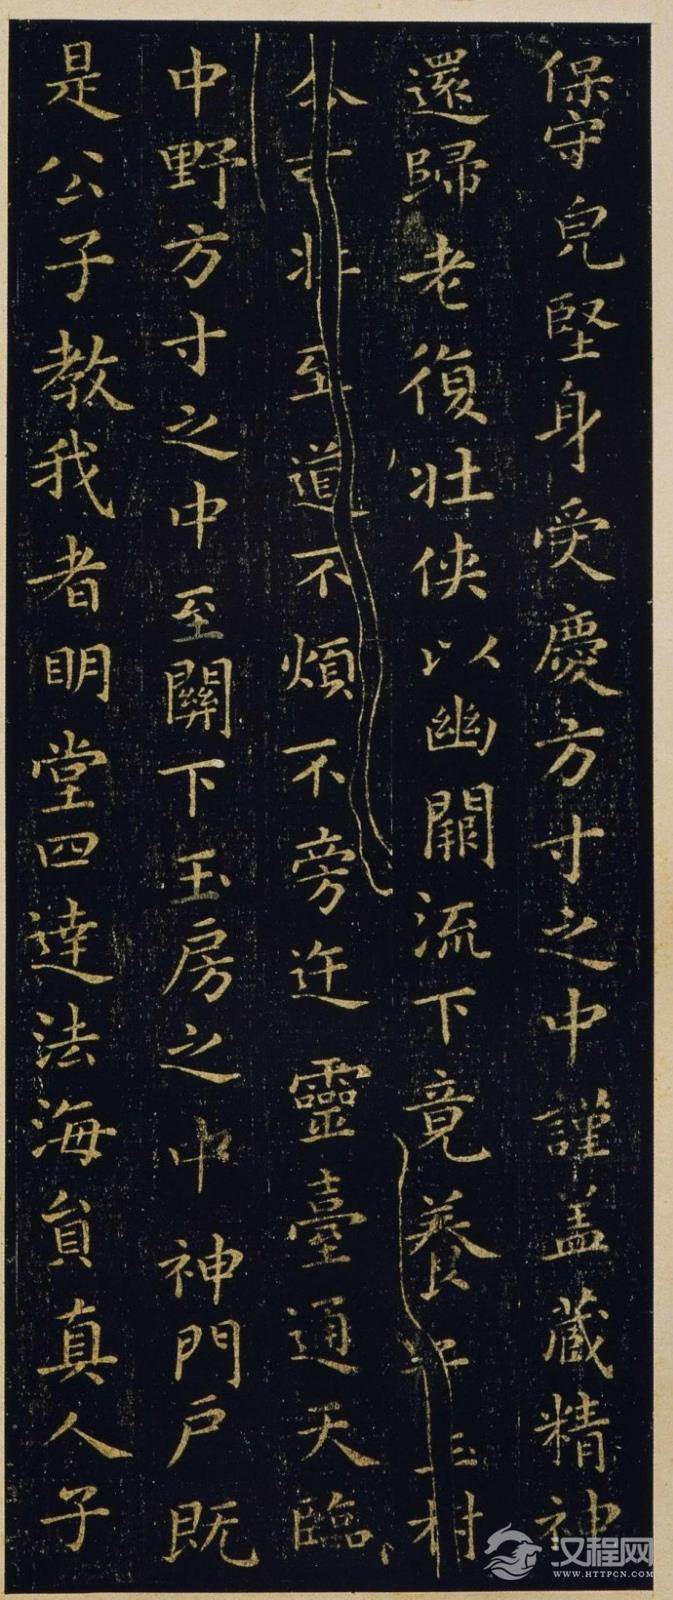 保守皃堅身受慶方寸之中謹盖藏精神
還歸老復壯俠以幽闕流下竟養玉村
不可杖至道不煩不旁迕靈臺通天臨
中野方寸之中至關下玉房之中神門戶既
是公子教我者明堂四達法海員真人子
汉程网
WWW.HTTPCN.COM